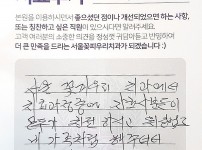 본원을 이용하시면서 좋으셨던 점이나 개선되었으면 하는 사항,
또는 칭찬하고 싶은 직원이 있으시다면 말씀해주세요.
고객 여러분의 소중한 의견을 정성껏 귀담아듣고 반영하여
더 큰 만족을 드리는 서울꽃피우리치과가 되겠습니다 :)
서울 꽃피우리 치과에서
치료과정중에 직원분들이
모두다 친절하시고 원장님도
내 가족처럼 해주셨다